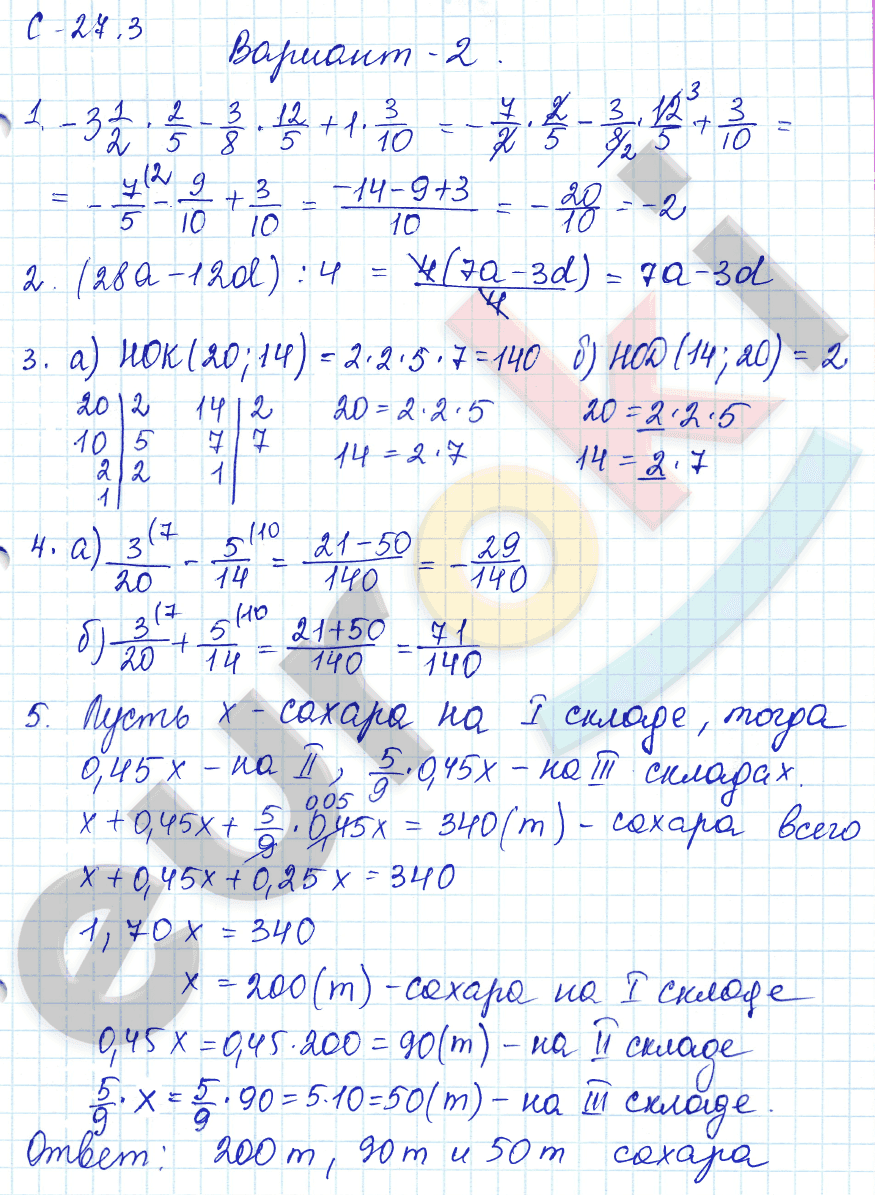 С-27.3
Вариант-2.
1. -3 1/2 · 2/5 - 3/8 · 12/5 + 1 · 3/10 = -7/2 · 2/5 - 3/8 2 · 12 3/5 + 3/10 =
= -7(2/5 - 9/10 + 3/10 = -14-9+3/10 = -20/10 = -2
2. (28a-12d) : 4 = 4(7a-3d)/4 = 7a-3d
3. а) НОК(20;14) = 2·2·5·7=140 б) НОD(14;20) = 2
20|2 14|2 20=2·2·5 20=2·2·5
10|5 7|7 14=2·7 14=2·7
2|2 1|
1|
4. а) 3(7/20 - 5(10/14 = 21-50/140 = -29/140
б) 3(7/20 + 5(10/14 = 21+50/140 = 71/140
5. Пусть х - сахара на I складе, тогда
0,45х - на II, 5/9·0,45х - на III складах.
0,05
х+0,45х+ 5/9 · 0,45х = 340(т) - сахара всего
х+0,45х+0,25х=340
1,70х = 340
х = 200(т) - сахара на I складе
0,45х=0,45·200=90(т) - на II складе
5/9·х=5/9·90=5·10=50(т) - на III складе.
Ответ: 200т, 90т и 50т сахара
euroki